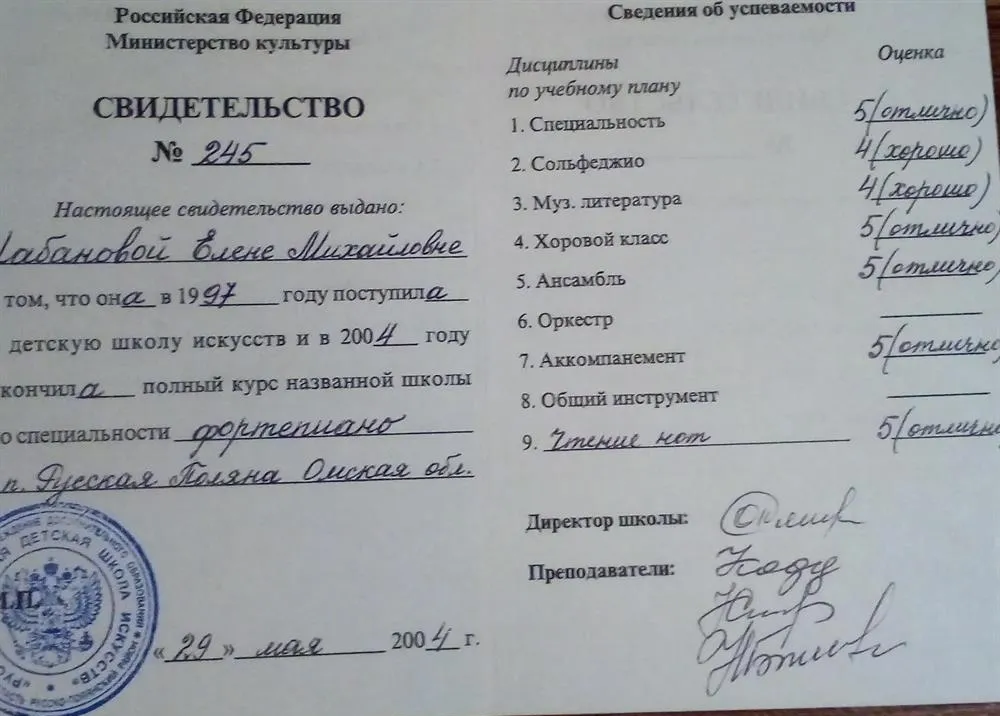 Российская Федерация
Министерство культуры
СВИДЕТЕЛЬСТВО
№ 245
Настоящее свидетельство выдано:
Елене Михайловне
том, что она в 1997 году поступила
детскую школу искусств и в 2004 году
кончила полный курс названной школы
о специальности фортепиано
п. Русская Поляна Омская обл.
ДЕТСКАЯ ШКОЛА ИСКУССТВ
М.П.
«29» мая 2004 г.
Сведения об успеваемости
Дисциплины Оценка
по учебному плану
1. Специальность 5 (отлично)
2. Сольфеджио 4 (хорошо)
3. Муз. литература 4 (хорошо)
4. Хоровой класс 5 (отлично)
5. Ансамбль 5 (отлично)
6. Оркестр
7. Аккомпанемент 5 (отлично
8. Общий инструмент
9. Чтение нот 5 (отлично
Директор школы:
Преподаватели: